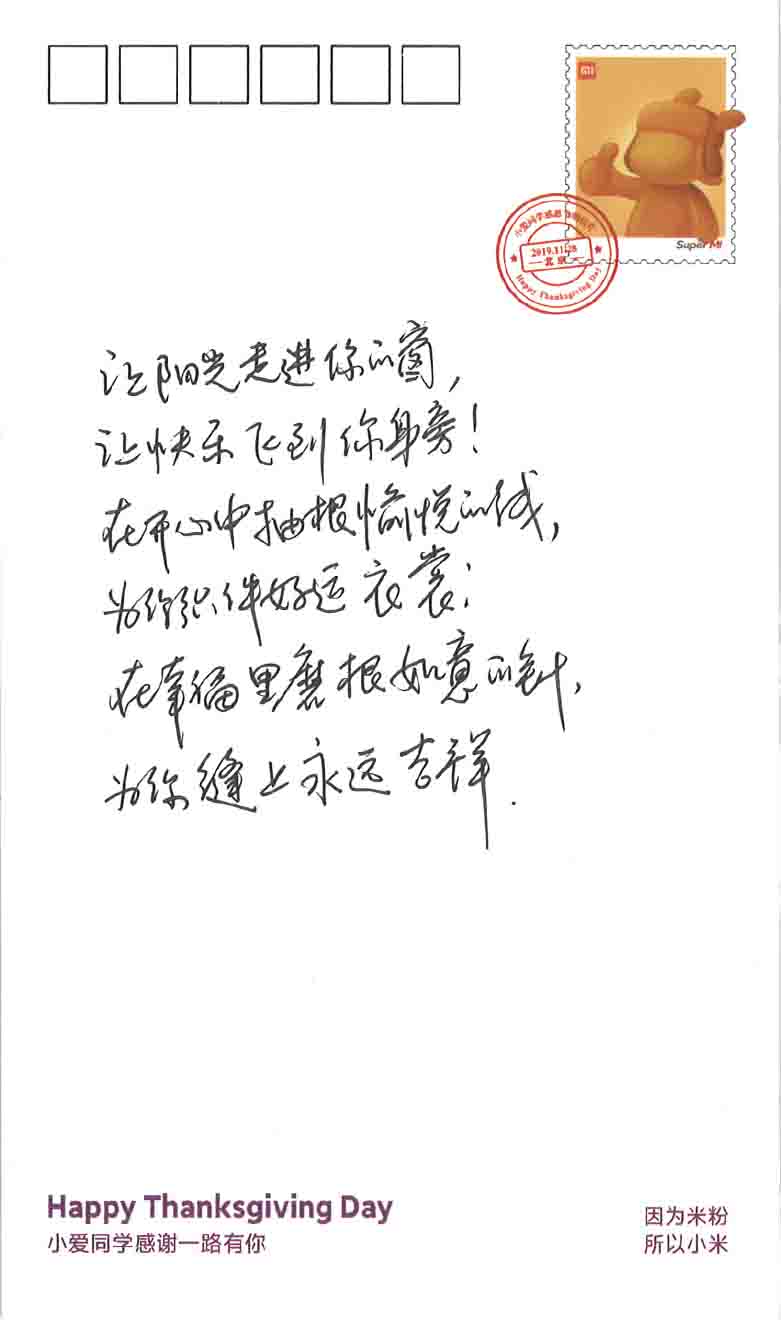 MI
Super MI
小爱同学感恩
2019.11.28
北京
Happy Thanksgiving Day
让阳光走进你的窗,
让快乐飞到你身旁!
在开心中抽根愉悦的线,
为你织件好运衣裳;
在幸福里磨根如意的针,
为你缝上永远吉祥.
Happy Thanksgiving Day
小爱同学感谢一路有你
因为米粉
所以小米